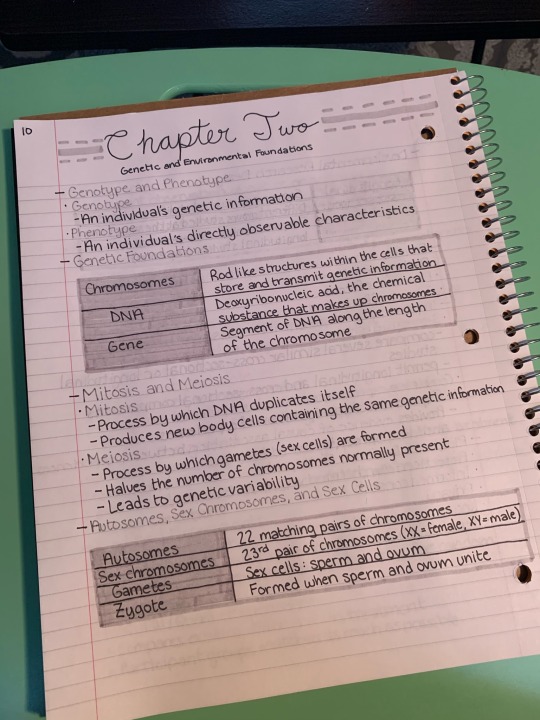 10
Chapter Two
Genetic and Environmental Foundations
- Genotype and Phenotype
· Genotype
- An individual's genetic information
· Phenotype
- An individual's directly observable characteristics
- Genetic Foundations
Chromosomes
Rod like structures within the cells that
store and transmit genetic information
DNA
Deoxyribonucleic acid, the chemical
substance that makes up chromosomes
Gene
Segment of DNA along the length
of the chromosome
- Mitosis and Meiosis
· Mitosis
- Process by which DNA duplicates itself
- Produces new body cells containing the same genetic information
· Meiosis
- Process by which gametes (sex cells) are formed
- Halves the number of chromosomes normally present
- Leads to genetic variability
- Autosomes, Sex Chromosomes, and Sex Cells
Autosomes
22 matching pairs of chromosomes
Sex chromosomes
23rd pair of chromosomes (XX = female, XY = male)
Gametes
Sex cells: sperm and ovum
Zygote
Formed when sperm and ovum unite